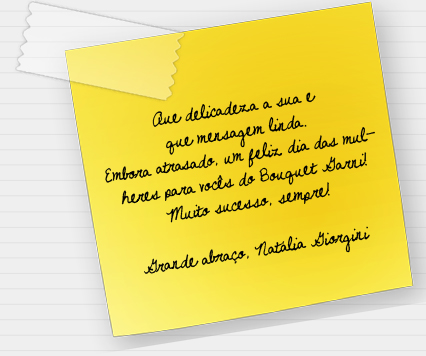 Que delicadeza a sua e
que mensagem linda.
Embora atrasado, um feliz dia das mul-
heres para vocês do Bouquet Garni!
Muito sucesso, sempre!
Grande abraço, Natália Giorgini